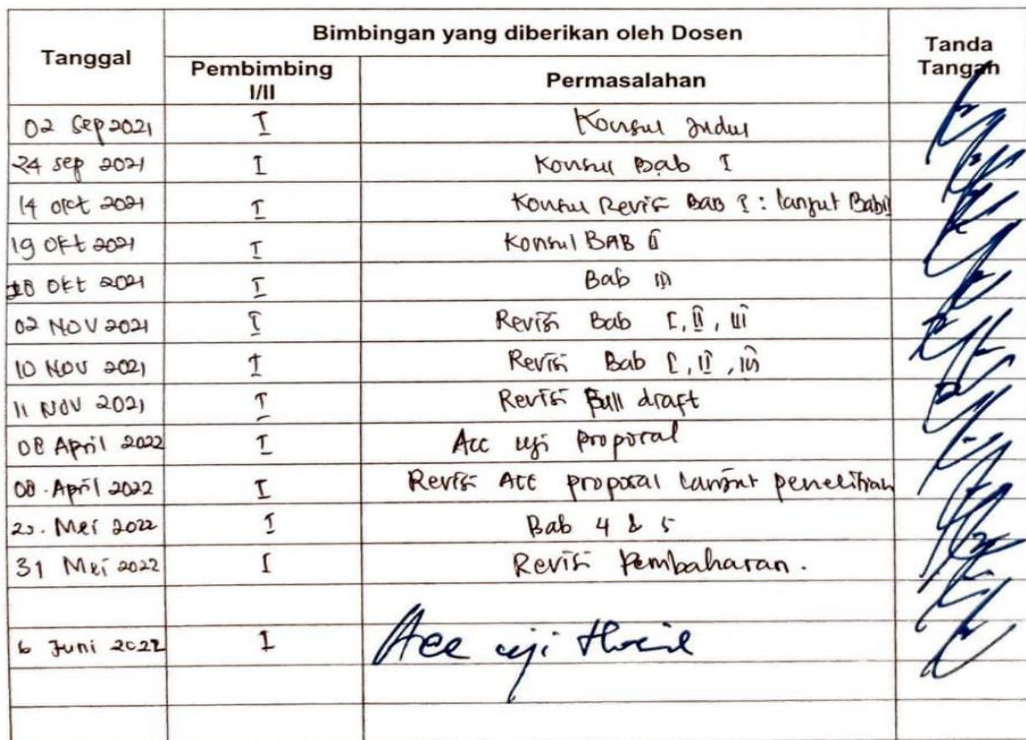 Bimbingan yang diberikan oleh Dosen
Tanggal Pembimbing I/II Permasalahan Tanda Tangan
02 Sep 2021 I Konsul Judul
24 sep 2021 I Konsul Bab I
14 okt 2021 I Konsul Revisi Bab I : lanjut Bab II
19 Okt 2021 I Konsul BAB II
28 Okt 2021 I Bab III
02 NOV 2021 I Revisi Bab I, II, III
10 NOV 2021 I Revisi Bab I, II, III
11 NOV 2021 I Revisi Full draft
08 April 2022 I Acc uji proposal
08. April 2022 I Revisi Acc proposal lanjut penelitian
Mei 2022 I Bab 4 & 5
31 Mei 2022 I Revisi Pembahasan.
6 Juni 2022 I Acc uji Hasil